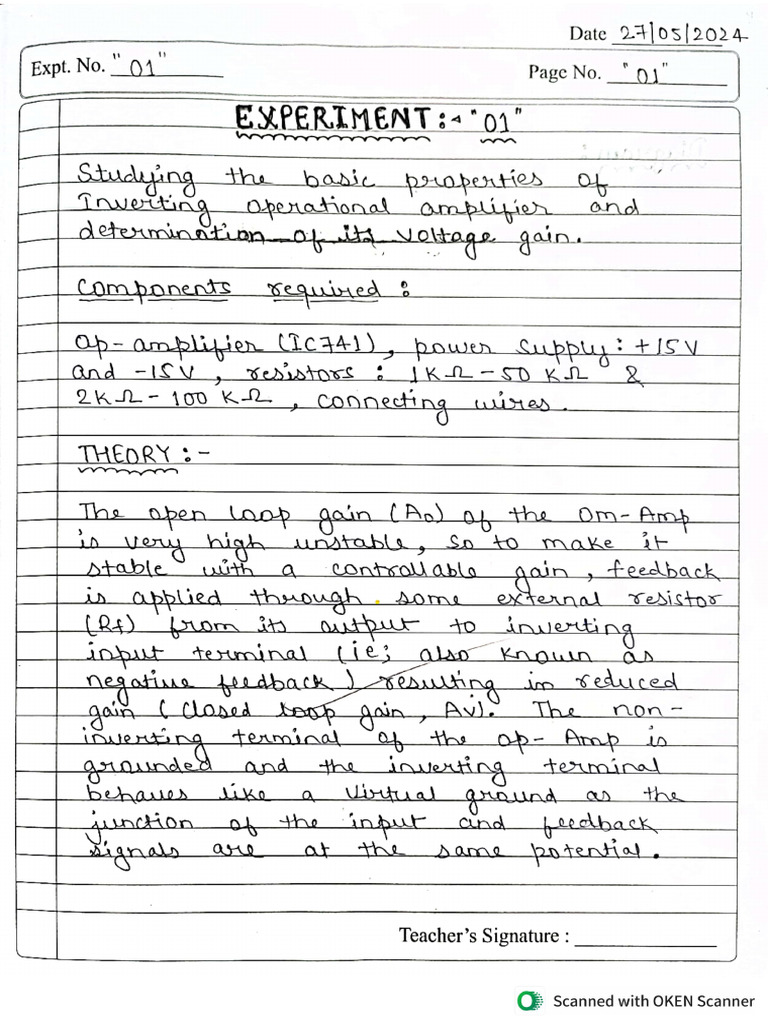 Date 27/05/2024
Expt. No. "01"
Page No. "01"
EXPERIMENT:- "01"
Studying the basic properties of
Inverting operational amplifier and
determination of its voltage gain.
Components required :
Op-amplifier (IC741), power supply: +15V
and -15V, resistors : 1KΩ - 50 KΩ &
2KΩ - 100 KΩ, connecting wires.
THEORY :-
The open loop gain (Ao) of the Om-Amp
is very high unstable, so to make it
stable with a controllable gain, feedback
is applied through some external resistor
(Rf) from its output to inverting
input terminal (ie; also known as
negative feedback) resulting in reduced
gain (closed loop gain, Av). The non-
inverting terminal of the op-Amp is
grounded and the inverting terminal
behaves like a virtual ground as the
junction of the input and feedback
signals are at the same potential.
Teacher's Signature :
Scanned with OKEN Scanner